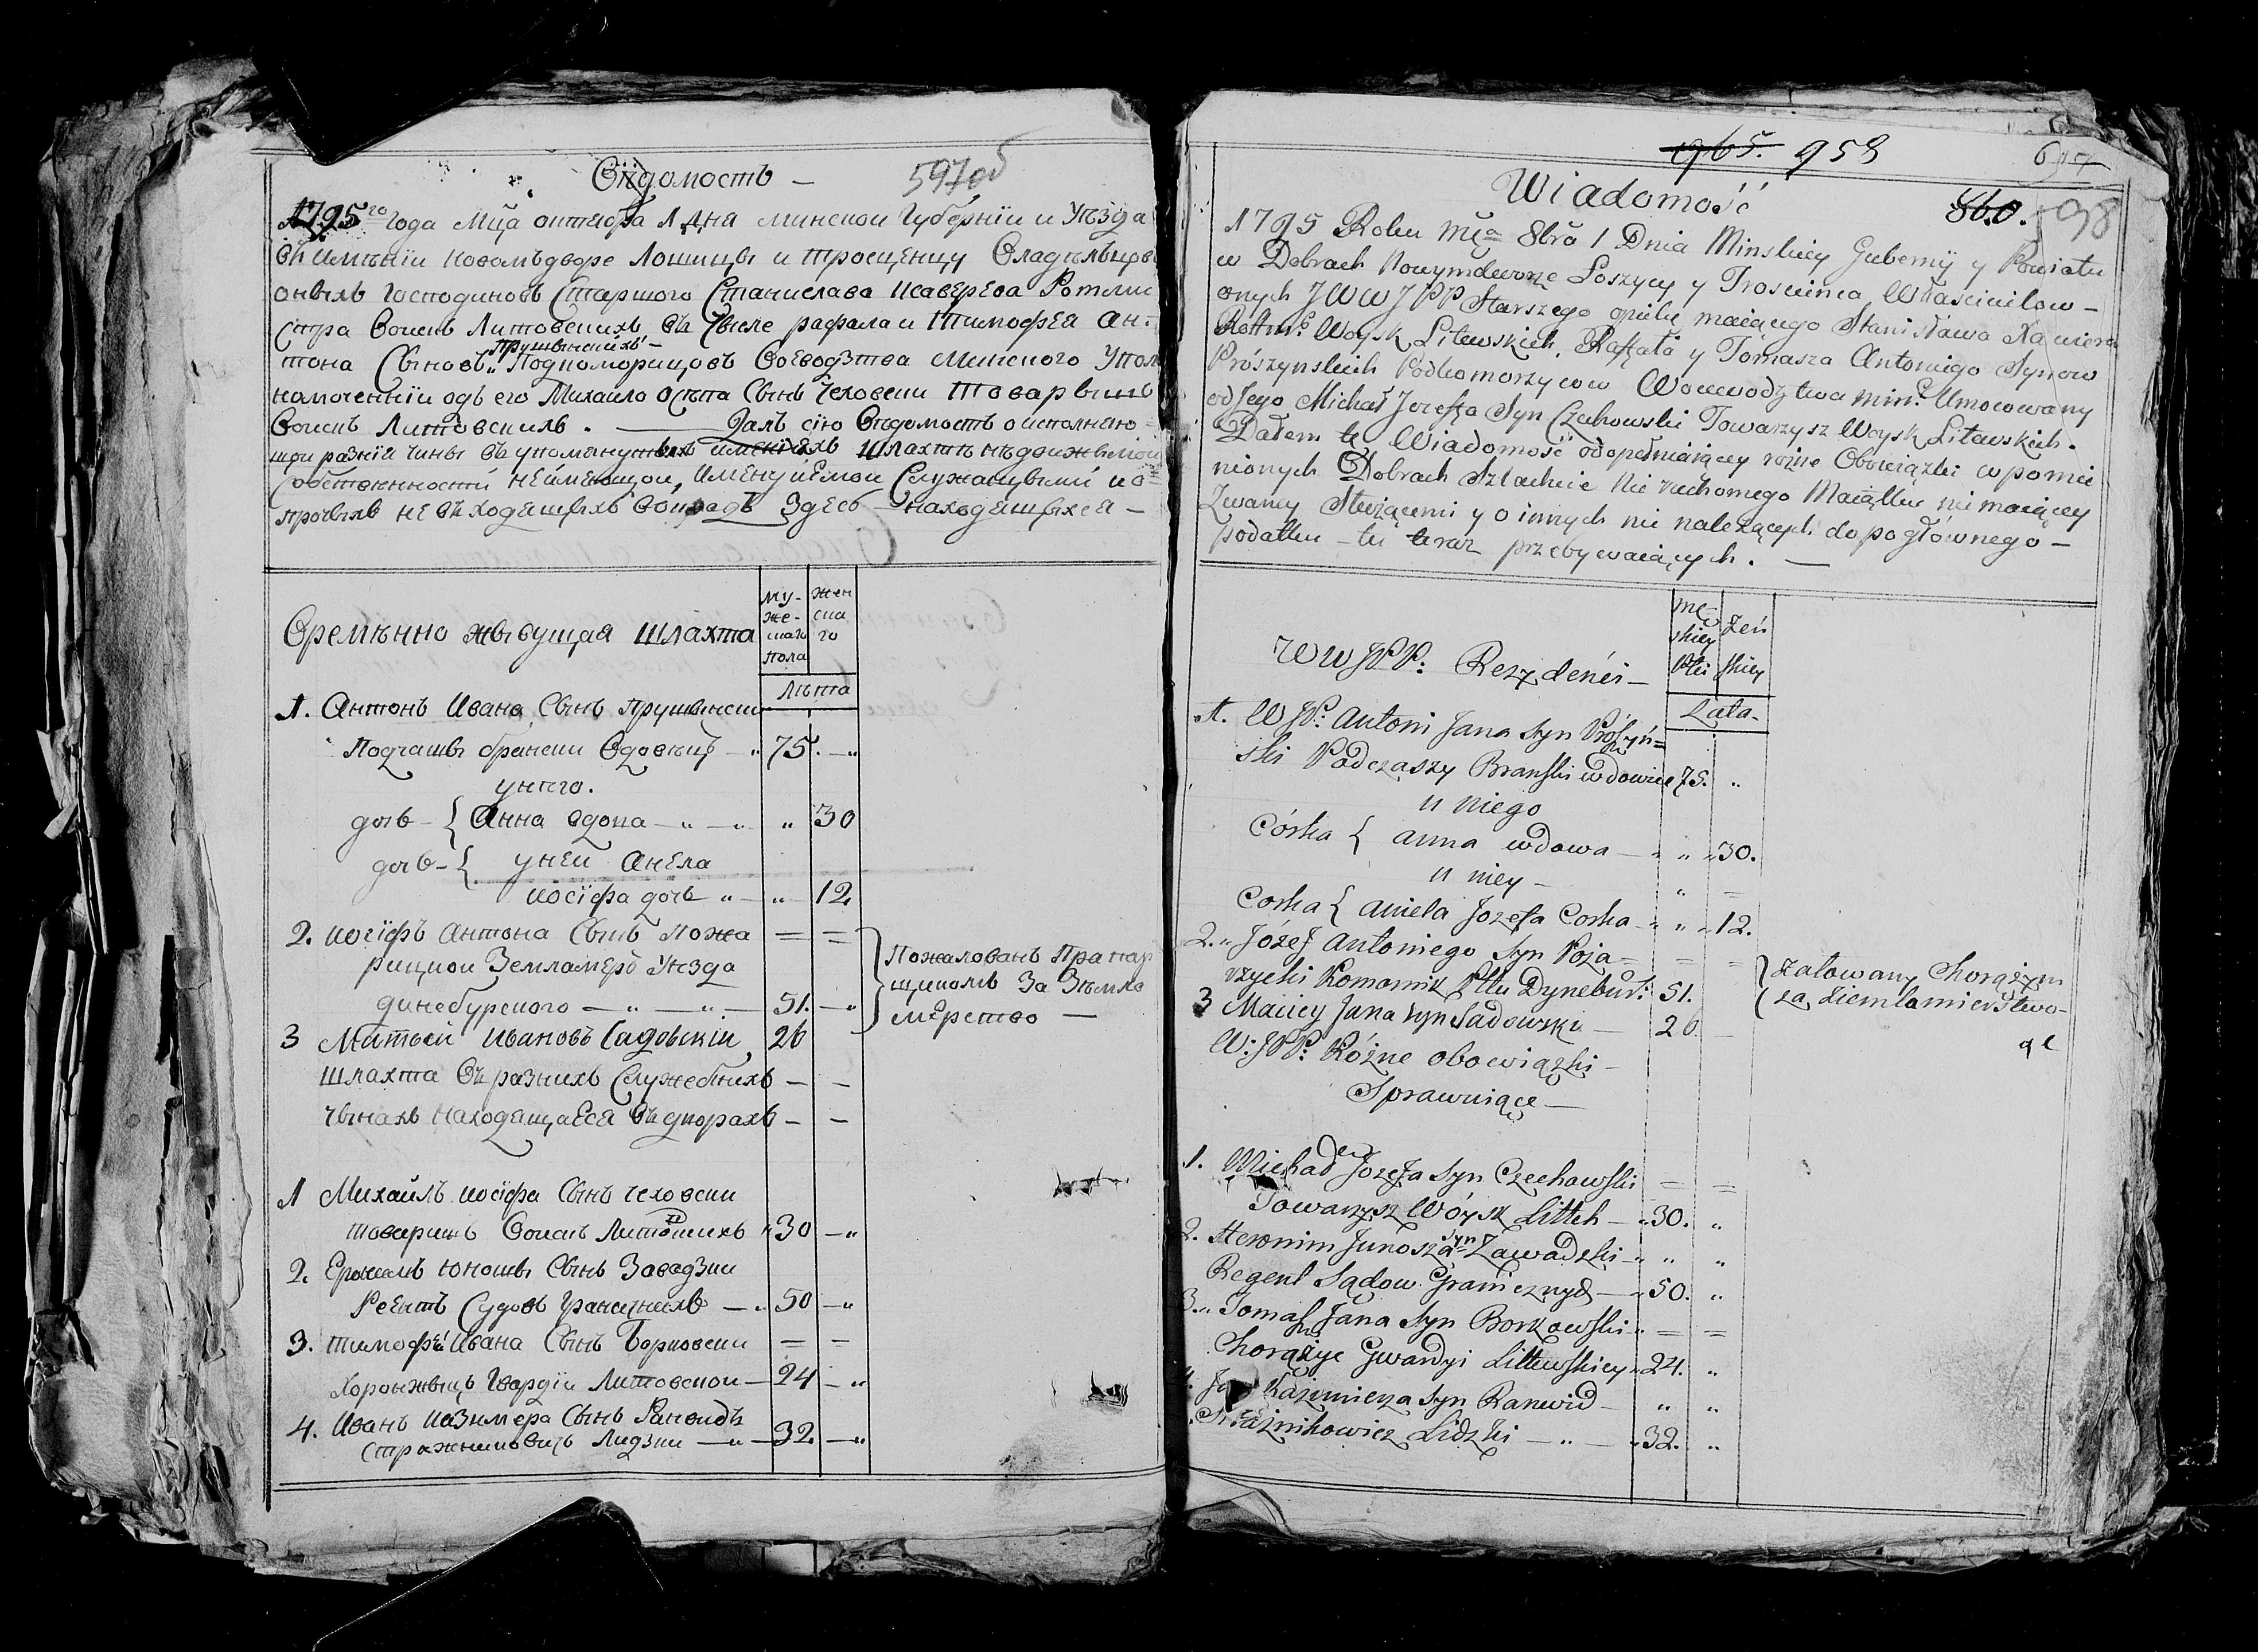 Вѣдомость —
597об
1795го года Мца октября 1 дня Минскои Губернїи и Уѣзда
въ имѣнїи Новомъдворе Лошицы и Тросценцу Владѣльцовъ
оныхъ Господиновъ Старшого Станислава Ксаверева Ротми
стра Воискъ Литовскихъ, въ числе Рафала и Тимофѣя Ан-
тона Сыновъ Прушинскихъ Подкоморицовъ Воеводзтва Минского Упол
номоченнїи одъ его Михайло Осипа Сынъ Чеховски Товарышъ
Воискъ Литовскихъ. — Далъ сїю Вѣдомость о исполняю
щи разнїи чины въ упомянутыхъ имѣнїяхъ Шляхтѣ нѣдвижимои
собственности неимѣющои, именуемои Служащыми и о
прочыхъ не въходящыхъ въ окладъ здесь находящыхся —
Времѣнно жывущая шляхта
му-
же-
скаго
пола
жен
ска
го
Лѣта
1. Антонъ Ивана Сынъ Прушински
Подчашы брански Вдовецъ — „ 75. — „
унего.
дочь — { Анна вдова — „ — „ „ 30
дочь — { у неи Анела
иосїфа дочь „ — „ 12
2. иосїфъ Антона Сынъ Пожа = =
рицкои Землемеръ Уѣзда
динебурского — „ — „ — 51. — „
} Пожалованъ Прапор
щикомъ За Зѣмло
мѣрство —
3 Матвѣй Ивановъ Садовскїи 26
шляхта въ разныхъ Служебныхъ — —
чынахъ находящаеся въ дворахъ — —
1 Михайлъ иосїфа Сынъ чеховски
товаришъ Воискъ Литовскихъ „ 30 — „
2. Еронимъ Юношы Сынъ Завадзки
Реентъ Судовъ Граничныхъ — „ 50 — „
3. Тимофѣй Ивана Сынъ Борковски = =
Хоронжыцъ Гвардїи Литовскои — 24 — „
4. Иванъ Казимера Сынъ Ранвидъ
Стражниковичъ Лидзки — „ — 32. — „
965. 958
860. 98
Wiadomość
1795 Roku Mca 8bra 1 Dnia Minskiey Gubernÿ y Powiatu
w Dobrach Nowymdworze Łoszycy y Troscieńca Właścicilow —
onych JWWJPP Starszego opiekę maiącego Stanisława Xawiera
Rottm: Woysk Litewskich, Raffała y Tomasza Antoniego Synow
Prószynskich Podkomorzycow Woiewodztwa Min: Umocowany
od Jego Michał Jozeffa Syn Czechowski Towarzysz Woysk Litewskich.
Dałem tę Wiadomość o dopełniaiącey rożne Obowiązki w pomie
nionych Dobrach Szlachcie Nie ruchomego Maiątku nie maiącey
Zwaney Służącemi y o innych nie należących do pogłównego —
podatku — tu teraz przebywaiących. —
WWJPP: Rezydenći —
mę
skiey
Płci
Żeń
skiey
Lata.
1. WJP: Antoni Jana Syn Prószyń=
ski Podczaszy Branski wdowiec 75. „
u niego
Córka { Anna wdowa — „ „ 30.
u niey — „ —
Corka { Aniela Jozefa Corka „ „ 12.
2. „ Józef Antoniego Syn Poża = = =
rzycki Komornik Pttu Dynebur: 51.
} załowany Chorążym
za Ziemlamierstwo —
3 Maciey Jana Syn Sadowski — 26. —
W:JPP: Rożne obowiązki —
Sprawuiące —
1. Michał Jozefa Syn Czechowski = =
Towarzysz Wóysk Littch — „ 30. „
2. Heronim Junosza Syn Zawadzki „ „ „
Regent Sądow Granicznych — „ 50. „
3. „ Tomasz Jana Syn Borkowski „ = =
Chorążyc Gwardyi Littewskiey „ 24. „
Kazimierza Syn Ranwid — „ „
Strażnikowicz Lidzki — „ — „ 32. „